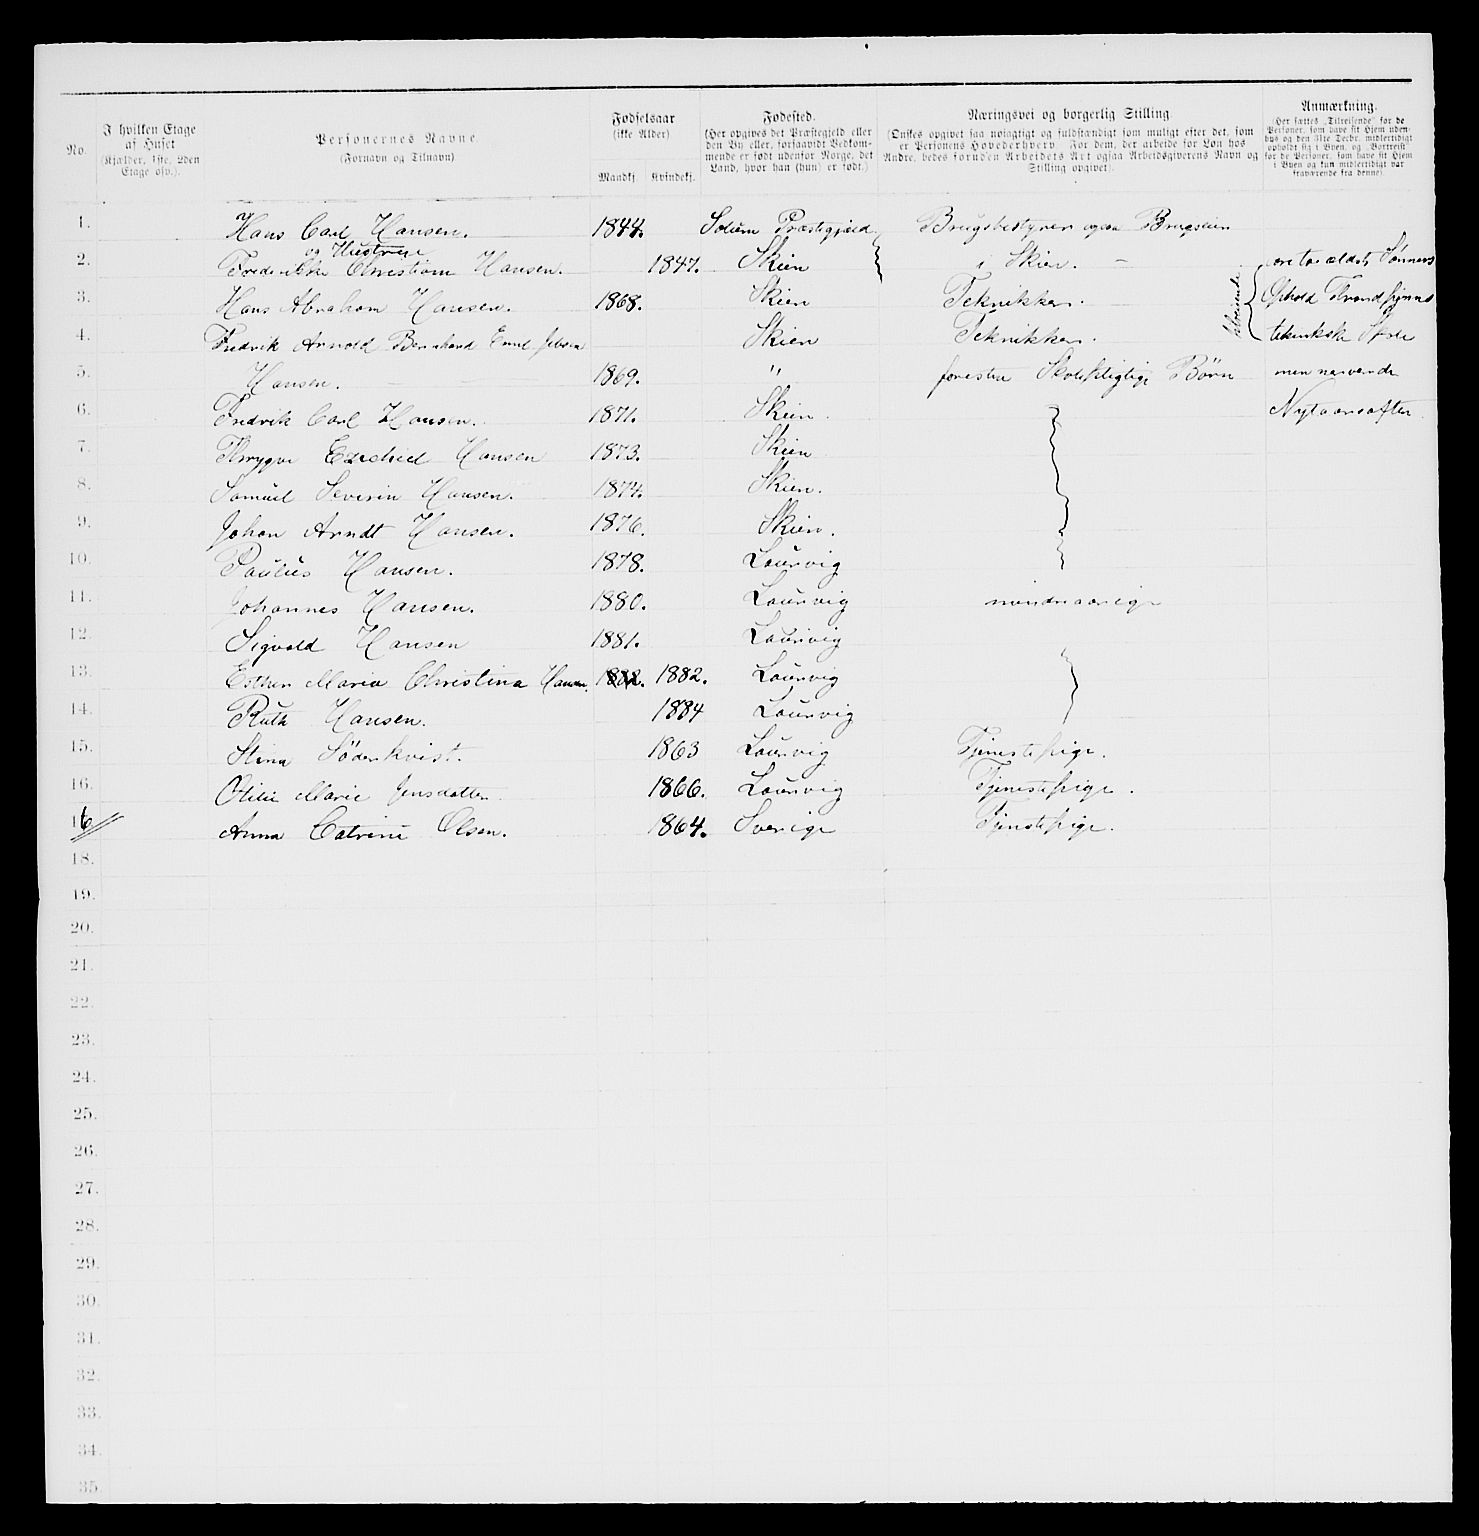 No.
I hvilken Etage af Huset (Kjælder, 1ste, 2den Etage osv.).
Personernes Navne. (Fornavn og Tilnavn)
Fødselsaar (ikke Alder)
Mandkj. Kvindekj.
Fødested. (Her opgives det Præstegjeld eller den By eller, forsaavidt Vedkommende er født udenfor Norge, det Land, hvor han (hun) er født.)
Næringsvei og borgerlig Stilling. (Ønskes opgivet saa nøiagtigt og fuldstændigt som muligt efter det, som er Personens Hovederhverv. For dem, der arbeide for Løn hos Andre, bedes foruden Arbeidets Art ogsaa Arbeidsgiverens Navn og Stilling opgivet).
Anmærkning. (Her sættes „Tilreisende" for de Personer, som have sit Hjem udenbys og den 31te Decbr. midlertidigt opholdt sig i Byen, og „Bortreist" for de Personer, som have sit Hjem i Byen og kun midlertidigt var fraværende fra denne).
1. Hans Carl Hansen. 1844. Solum Præstegjæld Brugsbestyrer ogsaa Brugseier
og Hustrue
2. Frederikke Christiane Hansen. 1847. Skien i Skien. – ældste Sønners
3. Hans Abraham Hansen. 1868. Skien Tekniker. tilreisende Ophold Trondhjems
4. Fredrik Arnold Bernhard Emil Jebsen Skien Tekniker. tekniske Skole
5. Hansen. 1869. " Skolepligtige Børn men nærværende
6. Fredrik Carl Hansen. 1871. Skien. Nytaarsaften
7. Thrygve Ezechiel Hansen 1873. Skien
8. Samuel Severin Hansen. 1874. Skien.
9. Johan Arndt Hansen. 1876. Skien.
10. Paulus Hansen. 1878. Laurvig
11. Johannes Hansen. 1880. Laurvig mindreaarige
12. Sigvald Hansen 1881. Laurvig
13. Esther Maria Christina Hansen. 1882. 1882. Laurvig
14. Ruth Hansen. 1884 Laurvig
15. Stina Söderkvist. 1863 Laurvig Tjenestepige.
16. Otilie Marie Jensdatter 1866. Laurvig Tjenestepige.
16 Anna Catrine Olsen. 1864. Sverige Tjenstepige.
18.
19.
20.
21.
22.
23.
24.
25.
26.
27.
28.
29.
30.
31.
32.
33.
34.
35.